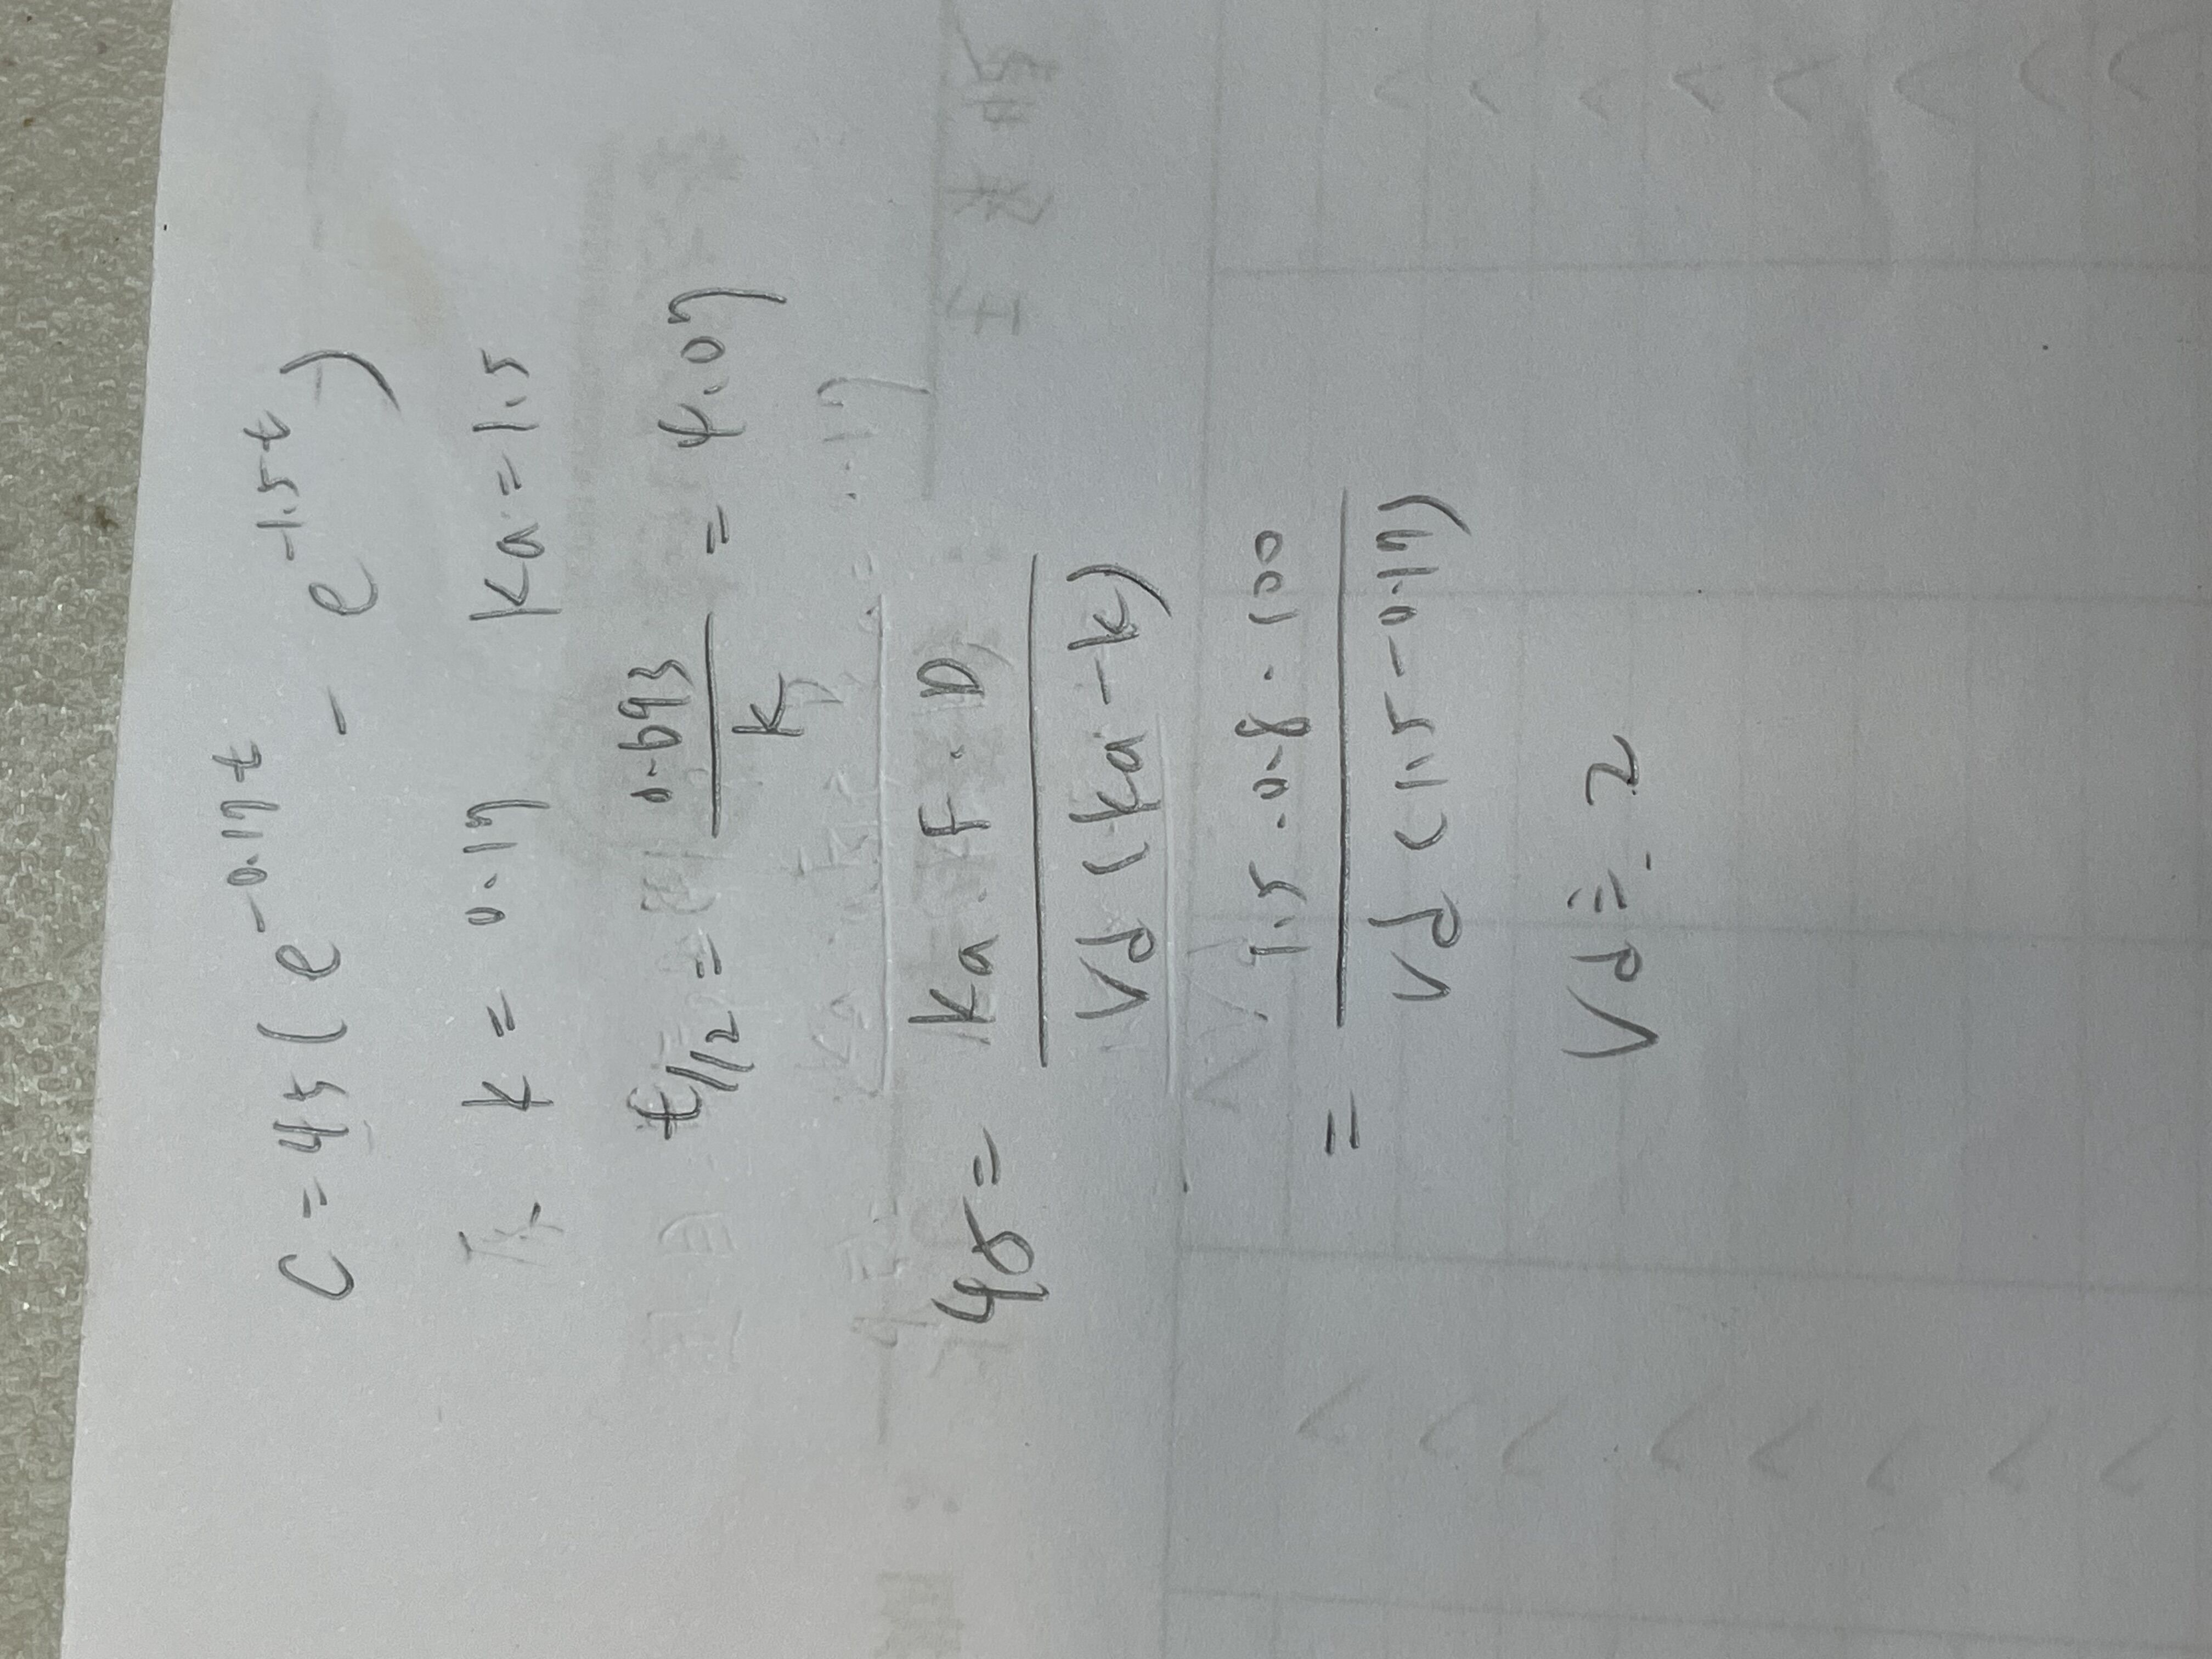 C = 45 ( e^-0.17t - e^-1.5t )
k = 0.17 ka = 1.5
t1/2 = 0.693/k = 4.07
45 = ka . F . D / Vd (ka - k)
= 1.5 . 0.8 . 100 / Vd (1.5 - 0.17)
Vd ≒ 2